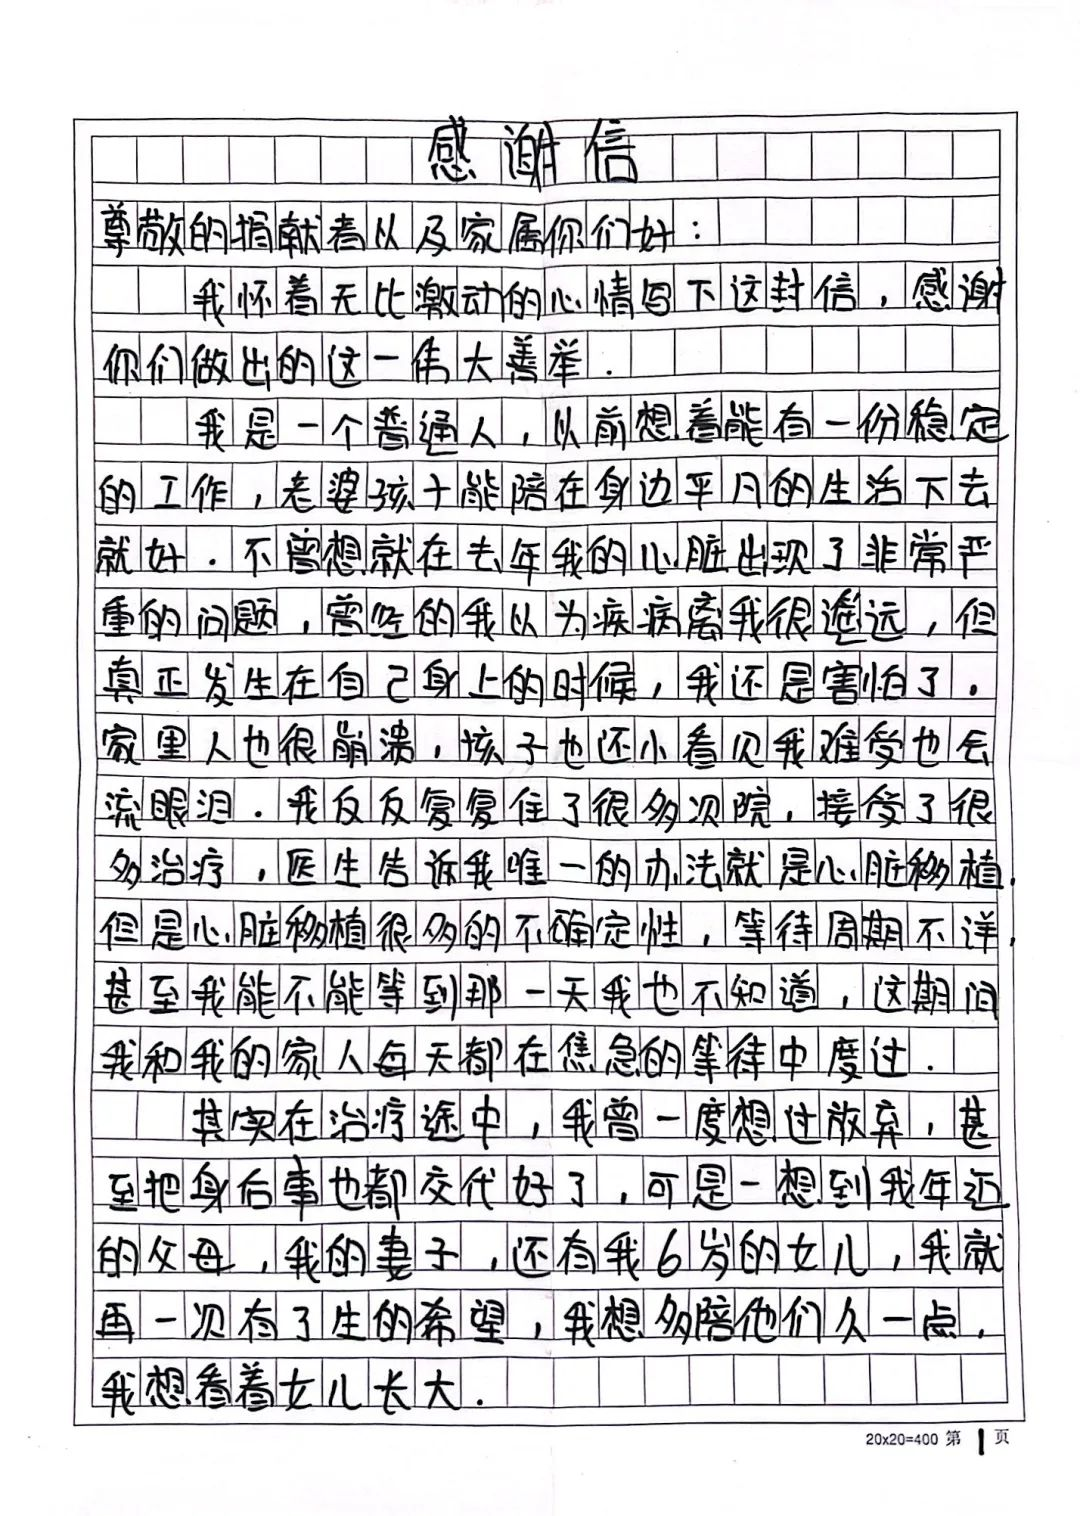 感谢信
尊敬的捐献者以及家属你们好：
我怀着无比激动的心情写下这封信，感谢
你们做出的这一伟大善举.
我是一个普通人，以前想着能有一份稳定
的工作，老婆孩子能陪在身边平凡的生活下去
就好.不曾想就在去年我的心脏出现了非常严
重的问题，曾经的我以为疾病离我很遥远，但
真正发生在自己身上的时候，我还是害怕了.
家里人也很崩溃，孩子也还小看见我难受也会
流眼泪.我反反复复住了很多次院，接受了很
多治疗，医生告诉我唯一的办法就是心脏移植.
但是心脏移植很多的不确定性，等待周期不详，
甚至我能不能等到那一天我也不知道，这期间
我和我的家人每天都在焦急的等待中度过.
其实在治疗途中，我曾一度想过放弃，甚
至把身后事也都交代好了，可是一想到我年迈
的父母，我的妻子，还有我6岁的女儿，我就
再一次有了生的希望，我想多陪他们久一点，
我想看着女儿长大.
20x20=400 第 1 页